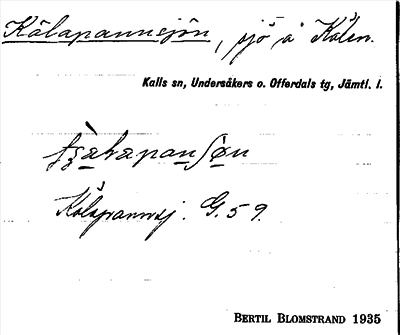 Kålapannsjön, sjö å Kölen.
Kalls sn, Undersåkers o. Offerdals tg, Jämtl. l.
Kålapannsj. G. 59.
BERTIL BLOMSTRAND 1935